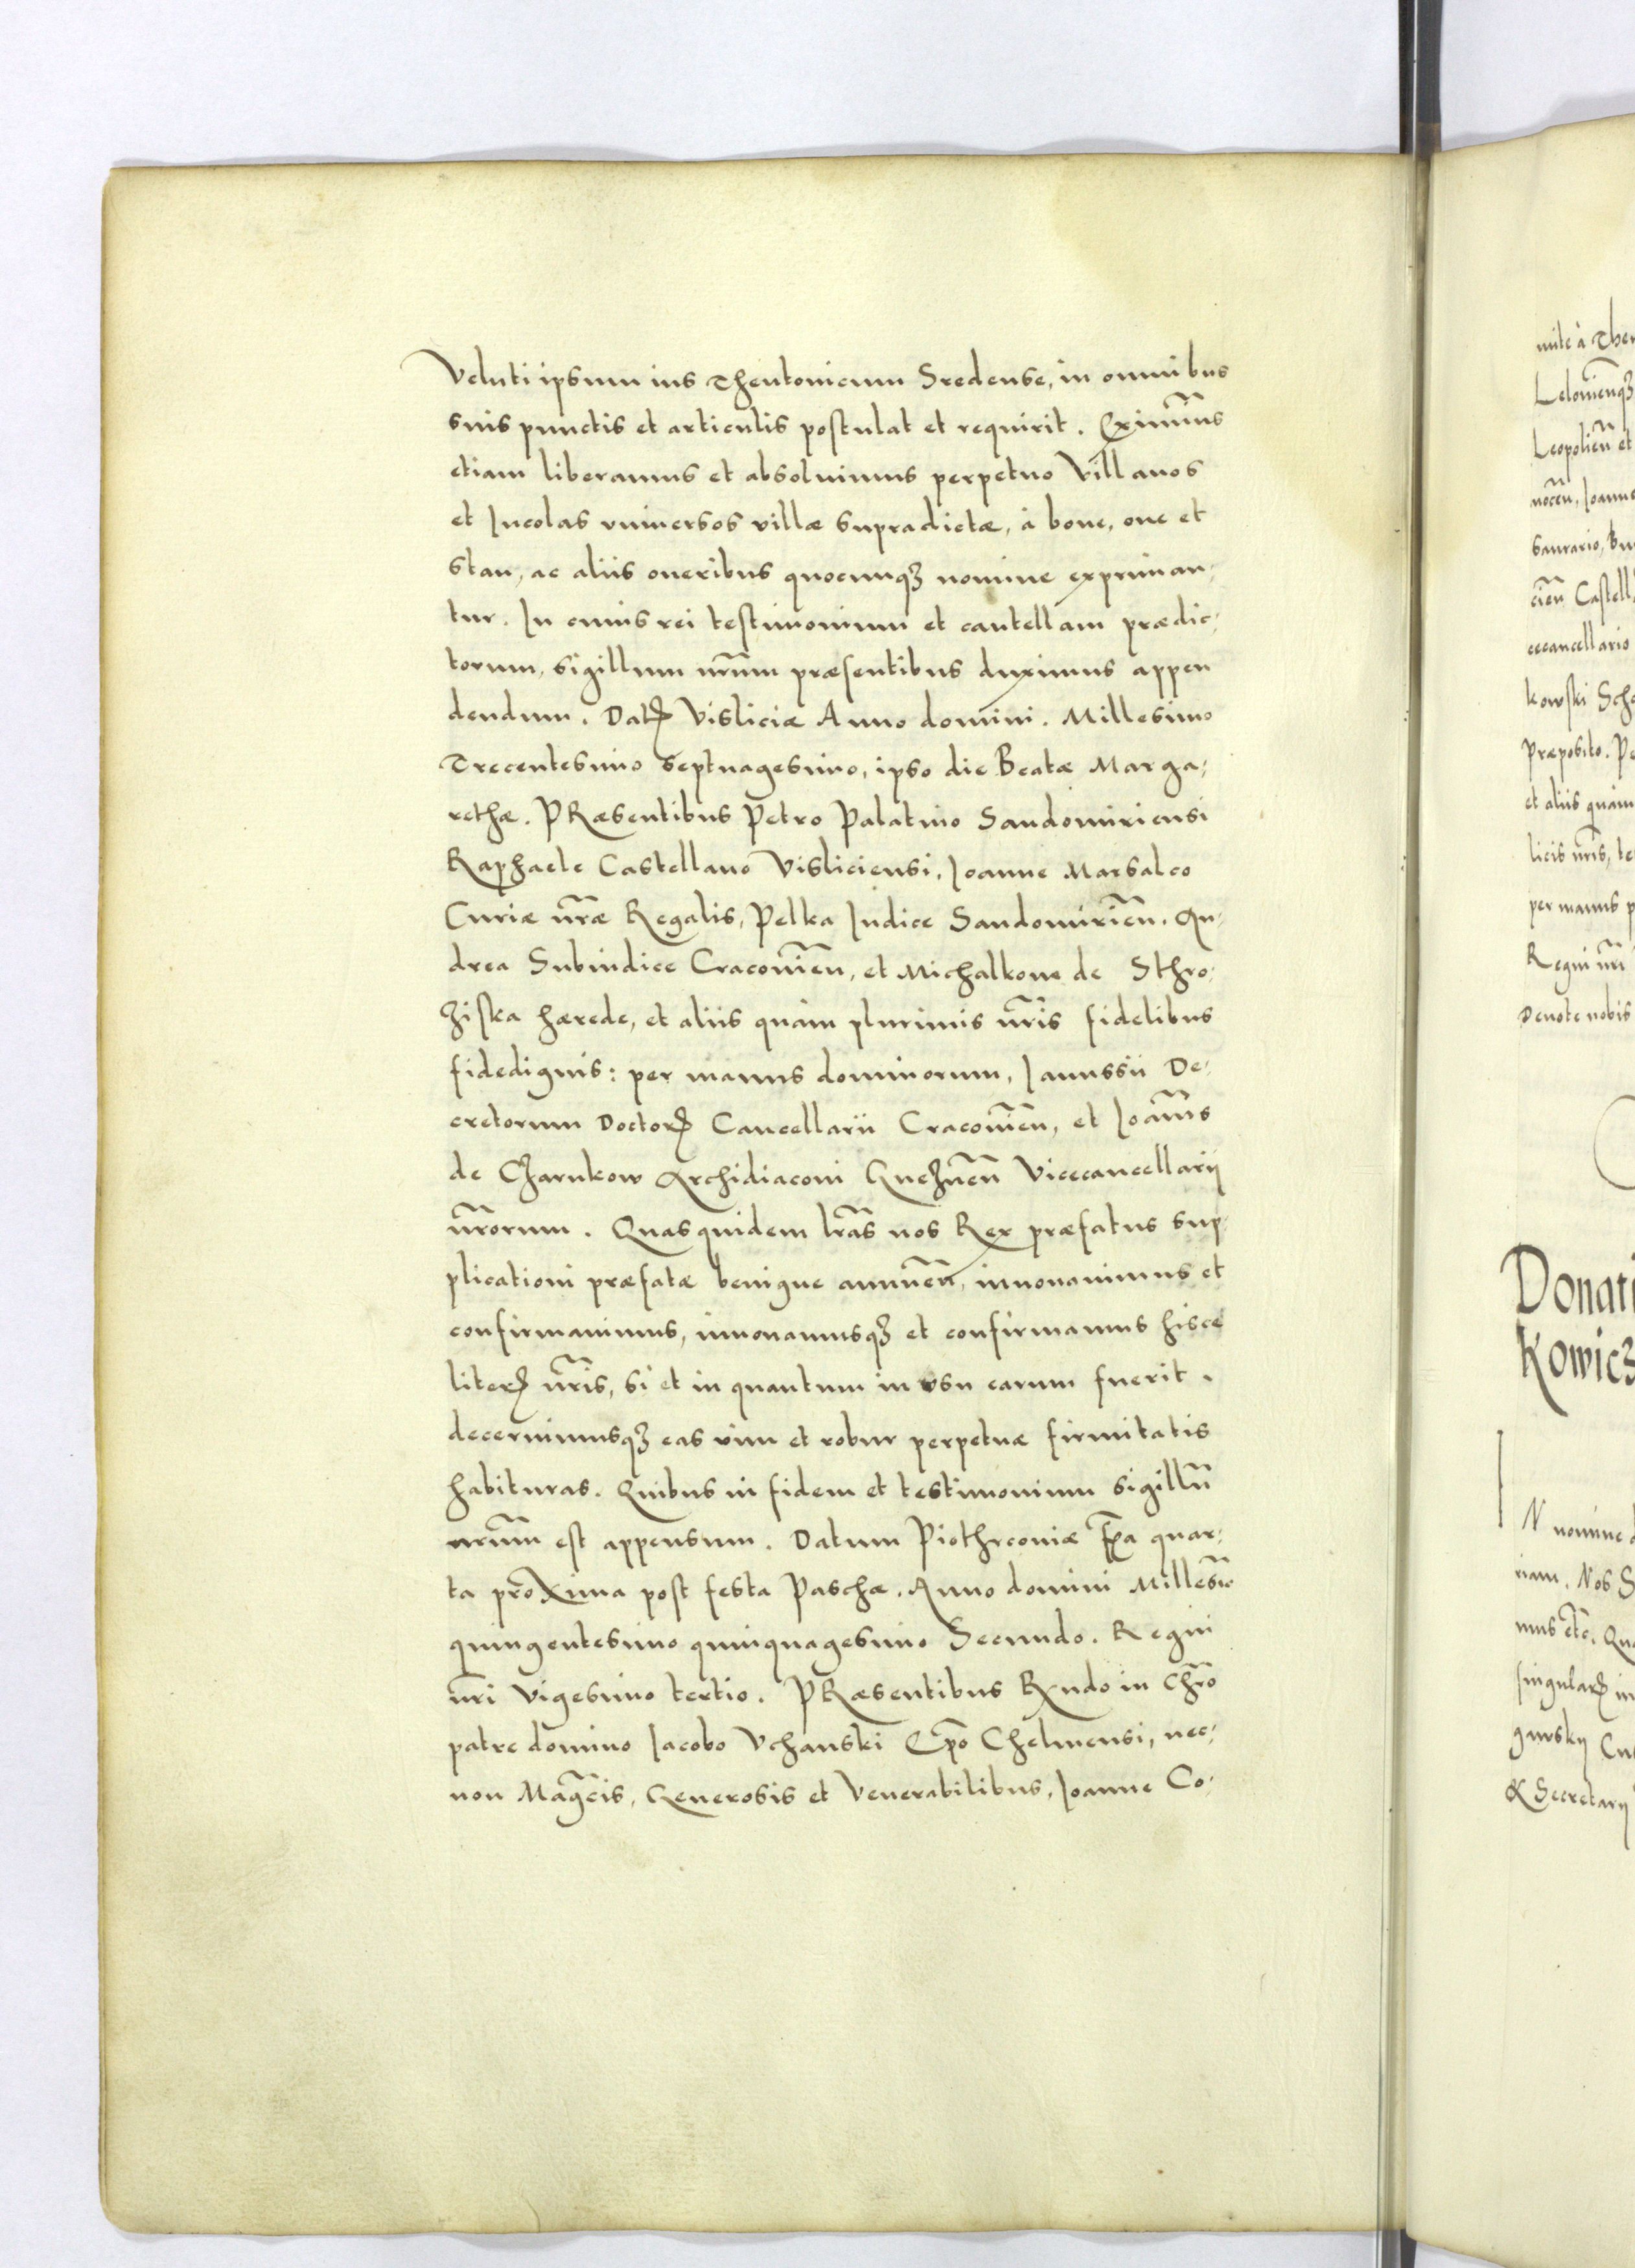 Veluti ipsum ius Theutonicum Sredense, in omnibus
suis punctis et articulis postulat et requirit. Eximim̃us
etiam liberamus et absoluimus perpetuo Villanos
et Incolas vniuersos villæ supradictæ, à boue, oue et
stan, ac aliis oneribus quocunqꝫ nomine expriman¬
tur. In cuius rei testimonium et cautellam prædic¬
torum, sigillum nr̃um præsentibus duximus appen
dendum. Datꝝ Visliciæ Anno domini. Millesimo
Trecentesimo septuagesimo, ipso die Beatæ Marga¬
rethæ. PRæsentibus Petro Palatino Sandomiriensi
Raphaele Castellano Visliciensi, Ioanne Marsalco
Curiæ nr̃æ Regalis, Pelka Iudice Sandomirien̄. An¬
drea Subiudice Cracouien̄, et Michalkone de Sthro¬
ziska hærede, et aliis quàm plurimis nr̃is fidelibus
fidedignis: per manus dominorum, Ianussii De¬
cretorum Doctorꝝ Cancellarii Cracouien̄, et Ioan̄is
de Charnkow Archidiaconi Gneznen̄ Vicecancellarij
nr̃orum. Quasquidem lr̃as nos Rex præfatus sup¬
plicationi præfatæ benigne annuen̄, innouauimus et
confirmauimus, innouamusqꝫ et confirmamus hisce
literꝝ nr̃is, si et in quantum in vsu earum fuerit.
decernimusqꝫ eas vim et robur perpetuæ firmitatis
habituras. Quibus in fidem et testimonium sigillū
nr̃um est appensum. Datum Piothrconiæ Fr̃a quar¬
ta proxima post festa Paschæ. Anno domini Millesīo
quingentesimo quinquagesimo Secundo. Regni
nr̃i vigesimo tertio. PRæsentibus Rn̄do in Chr̃o
patre domino Iacobo Vchanski Ep̃o Chelmensi, nec¬
non Mag̃cis, Generosis et Venerabilibus, Ioanne Co¬
nite à
Lelouien̄qꝫ
Leopolien̄ et
cien̄ Castell
cecancellario
kowski
Præposito.
et aliis quàm
licis nr̃is,
per manus
Regni nr̃i
Deuote nobis
Donati
Kowicz
N nomine
riam. Nos S
mus etc̃.
singularꝝ in
& Secretarij